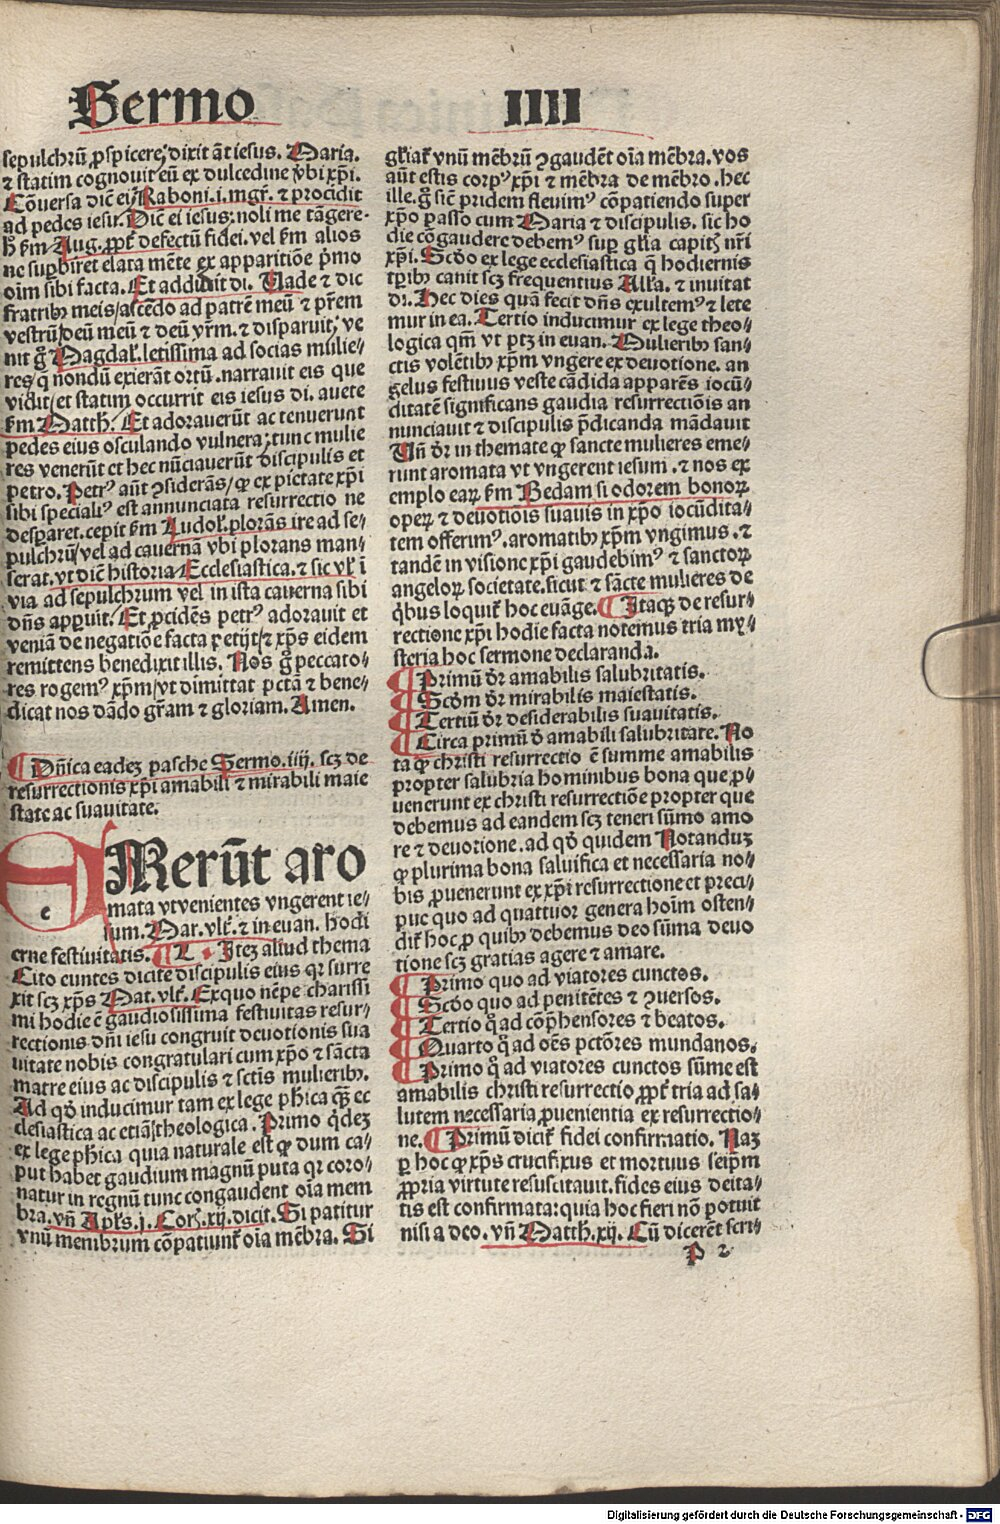 Sermo IIII
sepulchrū ꝓspicere/ dixit āt iesus. Maria.
⁊ statim cognouit eū ex dulcedine v̾bi xp̄i.
Cōuersa dic̄ ei/ Raboni.i.mgr̄. ⁊ procidit
ad pedes iesu. Dic̄ ei iesus: noli me tāgere.
h̄ ẜm Aug. ꝓpt̄ defectū fidei. vel ẜm alios
ne sup̄biret elata mēte ex apparitiōe p̄mo
oīm sibi facta. Et addidit di. Uade ⁊ dic
fratribꝰ meis/ ascēdo ad patrē meū ⁊ pr̄em
vestrū/ deū meū ⁊ deū vr̄m. ⁊ disparuit/ ve
nit g̊ Magdal̄. letissima ad socias mulie⸗
res/ q̄ nondū exierāt ortū. narrauit eis que
vidit/ et statim occurrit eis iesus di. auete
ẜm Matth̄. Et adorauerūt ac tenuerunt
pedes eius osculando vulnera/ tunc mulie
res venerūt et hec nūciauerūt discipulis et
petro. Petrꝰ aūt ɔsiderās/ ꝙ ex pietate xp̄i
sibi specialiꝰ est annunciata resurrectio ne
desꝑaret. cepit ẜm Ludol̄. plorās ire ad se⸗
pulchrū/ vel ad cauernā vbi plorans man⸗
serat. vt dic̄ historia Ecclesiastica. ⁊ sic vl̄ ī
via ad sepulchrum vel in ista cauerna sibi
dn̄s apꝑuit. Et ꝓcidēs petrꝰ adorauit et
veniā de negatiōe facta petijt/ ⁊ xp̄s eidem
remittens benedixit illis. Nos g̊ peccato⸗
res rogemꝰ xp̄m/ vt dimittat pctā ⁊ bene⸗
dicat nos dādo gr̄am ⁊ gloriam. Amen.
¶ Dn̄ica eadeꝫ pasche Sermo.iiij. scꝫ de
resurrectionis xp̄i amabili ⁊ mirabili maie
state ac suauitate.
e
EMerūt aro
mata vt venientes vngerent ie⸗
sum. Mar. vlt̄. ⁊ in euan. hodi
erne festiuitatis. ¶ L. Iteꝫ aliud thema
Cito euntes dicite discipulis eius qꝛ surre
xit scꝫ xp̄s Mat. vlt̄. Ex quo nēpe charissi
mi hodie ē gaudiosissima festiuitas resur⸗
rectionis dn̄i iesu congruit deuotionis sua
uitate nobis congratulari cum xp̄o ⁊ sācta
matre eius ac discipulis ⁊ sctīs mulieribꝰ.
Ad qd̄ inducimur tam ex lege ph̄ica qꝫ̄ ec
clesiastica ac etiā/ theologica. Primo q̊deꝫ
ex lege ph̄ica quia naturale est ꝙ dum ca⸗
put habet gaudium magnū puta qꝛ coro⸗
natur in regnū tunc congaudent oīa mem
bra. vn̄ Apl̄s.j. Cor̄.xij. dicit. Si patitur
vnū membrum cōpatiunt̄ oīa mēbra. Si
gl̄iat̄ vnū mēbrū ɔgaudēt oīa mēbra. vos
aūt estis corpꝰ xp̄i ⁊ mēbra de mēbro. hec
ille. g̊ sic̄ pridem fleuimꝰ cōpatiendo super
xp̄o passo cum Maria ⁊ discipulis. sic ho
die cōgaudere debemꝰ suꝑ gl̄ia capitꝭ nr̄i
xp̄i. Scd̄o ex lege ecclesiastica q̄ hodiernis
tꝑibꝰ canit scꝫ frequentius All̄a. ⁊ inuitat
di. Hec dies quā fecit dn̄s exultemꝰ ⁊ lete
mur in ea. Tertio inducimur ex lege theo⸗
logica qm̄ vt ptꝫ in euan. Mulieribꝰ san⸗
ctis volētibꝰ xp̄m vngere ex deuotione. an
gelus festiuus veste cādida apparēs iocū⸗
ditatē significans gaudia resurrectiōis an
nunciauit ⁊ discipulis p̄dicanda mādauit
Un̄ dr̄ in themate ꝙ sancte mulieres eme⸗
runt aromata vt vngerent iesum. ⁊ nos ex
emplo eaꝝ ẜm Bedam si odorem bonoꝝ
operꝝ ⁊ deuotiōis suauis in xp̄o iocūdita⸗
tem offerimꝰ. aromatibꝰ xp̄m vngimus. ⁊
tandē in visione xp̄i gaudebimꝰ ⁊ sanctoꝝ
angeloꝝ societate. sicut ⁊ sācte mulieres de
q̊bus loquit̄ hoc euāge. ¶ Itaqꝫ de resur⸗
rectione xp̄i hodie facta notemus tria my⸗
steria hoc sermone declaranda.
¶ Primū dr̄ amabilis salubritatis.
¶ Scd̄m dr̄ mirabilis maiestatis.
¶ Tertiū dr̄ desiderabilis suauitatis.
¶ Circa primū d̄ amabili salubritate. No
ta ꝙ christi resurrectio ē summe amabilis
propter salubria hominibus bona que ꝓ⸗
uenerunt ex christi resurrectiōe propter que
debemus ad eandem scꝫ teneri sūmo amo
re ⁊ deuotione. ad qd̄ quidem Notanduꝫ
ꝙ plurima bona saluifica et necessaria no⸗
bis ꝓuenerunt ex xp̄i resurrectione et preci⸗
pue quo ad quattuor genera hoīm osten⸗
dit̄ hoc ꝓ quibꝰ debemus deo sūma deuo
tione scꝫ gratias agere ⁊ amare.
¶ Primo quo ad viatores cunctos.
¶ Scd̄o quo ad penitētes ⁊ ɔuersos.
¶ Tertio q̊ ad cōp̄hensores ⁊ beatos.
¶ Quarto q̊ ad oēs pctōres mundanos.
¶ Primo q̊ ad viatores cunctos sūme est
amabilis christi resurrectio ꝓpt̄ tria ad sa⸗
lutem necessaria ꝓuenientia ex resurrectio⸗
ne. ¶ Primū dicit̄ fidei confirmatio. Naꝫ
ꝑ hoc ꝙ xp̄s crucifixus et mortuus seip̄m
ꝓpria virtute resuscitauit. fides eius deita⸗
tis est confirmata: quia hoc fieri nō potuit
nisi a deo. vn̄ Matth̄.xij. Cū dicerēt scri⸗
P 2
Digitalisierung gefördert durch die Deutsche Forschungsgemeinschaft - DFG